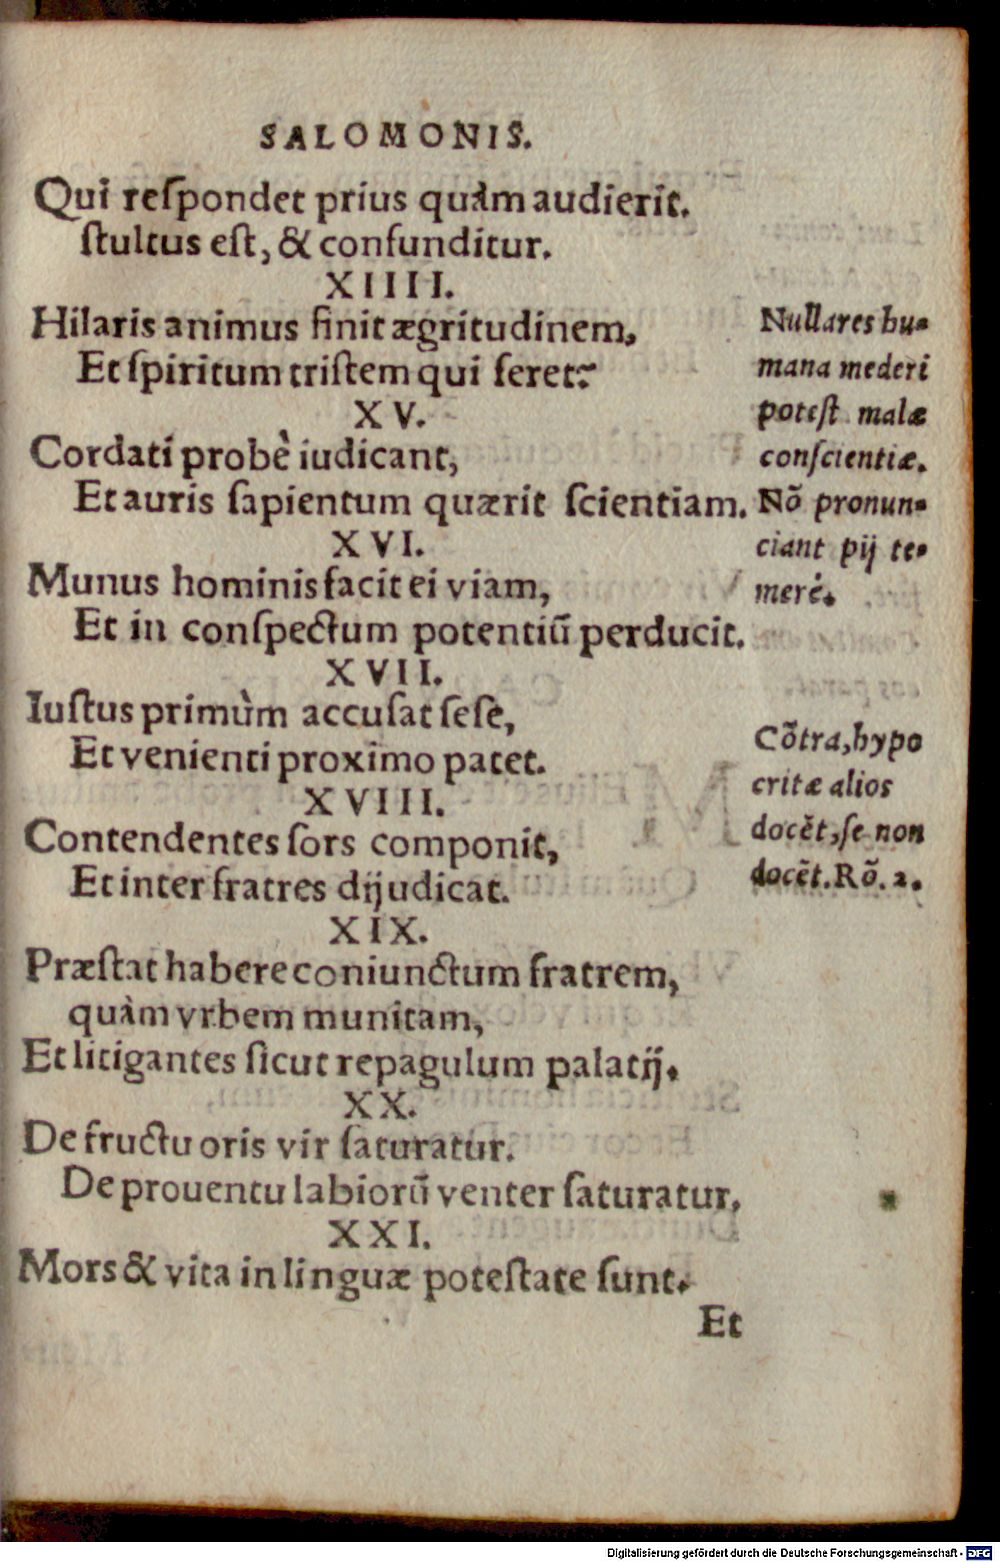 SALOMONIS.
Qui reſpondet prius quàm audierit.
ſtultus eſt, & confunditur.
XIIII.
Hilaris animus finit ægritudinem,
Et ſpiritum triſtem qui feret?
XV.
Cordati probè iudicant,
Et auris ſapientum quærit ſcientiam.
XVI.
Munus hominis facit ei viam,
Et in conſpectum potentiũ perducit.
XVII.
Iuſtus primùm accuſat ſeſe,
Et venienti proximo patet.
XVIII.
Contendentes ſors componit,
Et inter fratres dijudicat.
XIX.
Præſtat habere coniunctum fratrem,
quàm vrbem munitam,
Et litigantes ſicut repagulum palatij.
XX.
De fructu oris vir ſaturatur.
De prouentu labiorũ venter ſaturatur.
XXI.
Mors & vita in linguæ poteſtate ſunt.
Et
Nulla res hu-
mana mederi
poteſt malæ
conſcientiæ.
Nõ pronun-
ciant pij te-
merè.
Cõtra, hypo
critæ alios
docẽt, ſe non
docẽt. Rõ. 2.
Digitalisierung gefördert durch die Deutsche Forschungsgemeinschaft - DFG